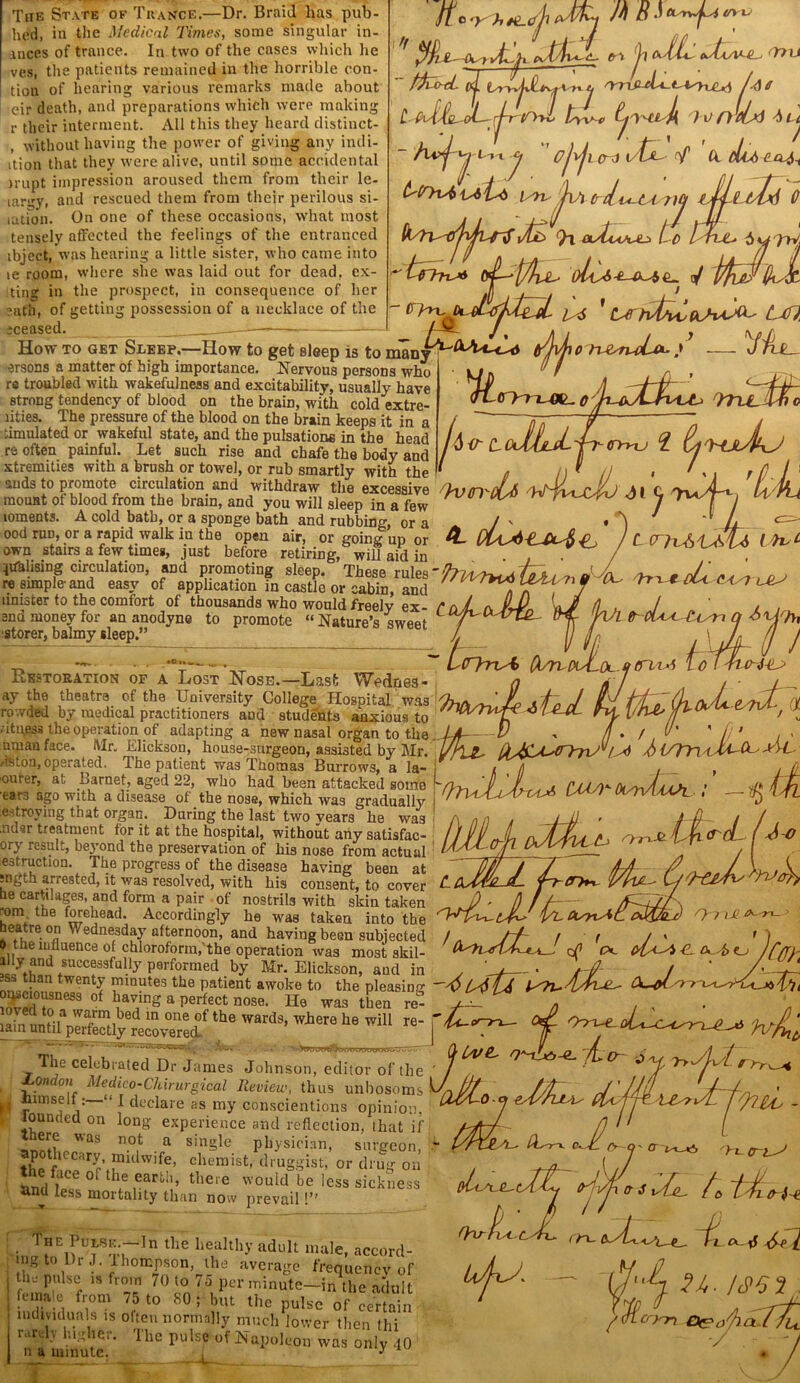 The State of Trance.—Dr. Braid has pub-
hed, in the Medical Times, some singular in-
ances of trance. In two of the cases which he
ves, the patients remained in the horrible con-
tion of hearing various remarks made about
eir death, and preparations which were making
r their interment. All this they heard distinct-
, without having the power of giving any indi-
ition that they were alive, until some accidental
rupt impression aroused them from their le-
argy, and rescued them from their perilous si-
ation. On one of these occasions, what most
tensely affected the feelings of the entranced
bject, was hearing a little sister, who came into
e room, where she was laid out for dead, ex-
ting in the prospect, in consequence of her
eath, of getting possession of a necklace of the
eceased.
How to get Sleep.—How to get sleep is to many
ersons a matter of high importance. Nervous persons who
re troubled with wakefulness and excitability, usually have
strong tendency of blood on the brain, with cold extre-
ities. The pressure of the blood on the brain keeps it in a
timulated or wakeful state, and the pulsations in the head
re often painful. Let such rise and chafe the body and
xtremities with a brush or towel, or rub smartly with the
ands to promote circulation and withdraw the excessive
mount of blood from the brain, and you will sleep in a few
oments. A cold bath, or a sponge bath and rubbing, or a
ood run, or a rapid walk in the open air, or going up or
own stairs a few times, just before retiring, will aid in
qualising circulation, and promoting sleep. These rules
re simple and easy of application in castle or cabin, and
inister to the comfort of thousands who would freely ex-
end money for an anodyne to promote “Nature’s sweet
storer, balmy sleep.”
Restoration of a Lost Nose.—Last Wednes-
ay the theatre of the University College Hospital was
rowded by medical practitioners and students anxious to
itness the operation of adapting a new nasal organ to the
uman face. Mr. Elickson, house-surgeon, assisted by Mr.
iston, operated. The patient was Thomas Burrows, a la-
ourer, at Barnet, aged 22, who had been attacked some
ears ago with a disease of the nose, which was gradually
estroying that organ. During the last two years he was
nder treatment for it at the hospital, without any satisfac-
ory result, beyond the preservation of his nose from actual
estruction. The progress of the disease having been at
ength arrested, it was resolved, with his consent, to cover
he cartilages, and form a pair of nostrils with skin taken
rom the forehead. Accordingly he was taken into the
heatre on Wednesday afternoon, and having been subjected
o the influence of chloroform, the operation was most skil-
ally and successfully performed by Mr. Elickson, and in
ess than twenty minutes the patient awoke to the pleasing
onsciousness of having a perfect nose. He was then re-
oved to a warm bed in one of the wards, where he will re-
ain until perfectly recovered.
The celebrated Dr James Johnson, editor of the
London Medico-Chirurgical Review, thus unbosoms
himself:—“I declare as my conscientions opinion,
founded on long experience and reflection, that if
there was not a single physician, surgeon,
apothecary, midwife, chemist, druggist, or drug on
the face of the earth, there would be less sickness
and less mortality than now prevail!”
The Pulse.—In the healthy adult male, accord-
ing to Dr J. Thompson, the average frequency of
the pulse is from 70 to 75 per minute—in the adult
female from 75 to 80; but the pulse of certain
individuals is often normally much lower then thi
rarely higher. The pulse of Napoleon was only 40
n a minute.
Homœopathy
The antipathic or palliative
thod of employing medicines (so
called from two Greek words
signifying "opposite" & "a disease
consists in producing effects
opposite in nature to the symp
toms of the disease, & the
adopted is 'contraria
opponenda.' — The
Homœopathic metho
(so called from 2 Greek
words which signify 'like
a disease') consists in
a medicine
capable of producing sym
toms analogous to those
manifested by the patient, &
the axiom is 'similia si
milibus curantur;' — & th
Allopathic method (so
called from the Greek wor
which translated mean
'another' & 'a disease') con
sists in the
tem of medicines which
give rise to symptoms
altogether different (nei -
ther analogous nor
directly opposite to those
which nature has set
up. — (July 24. 1852
Homœopathi